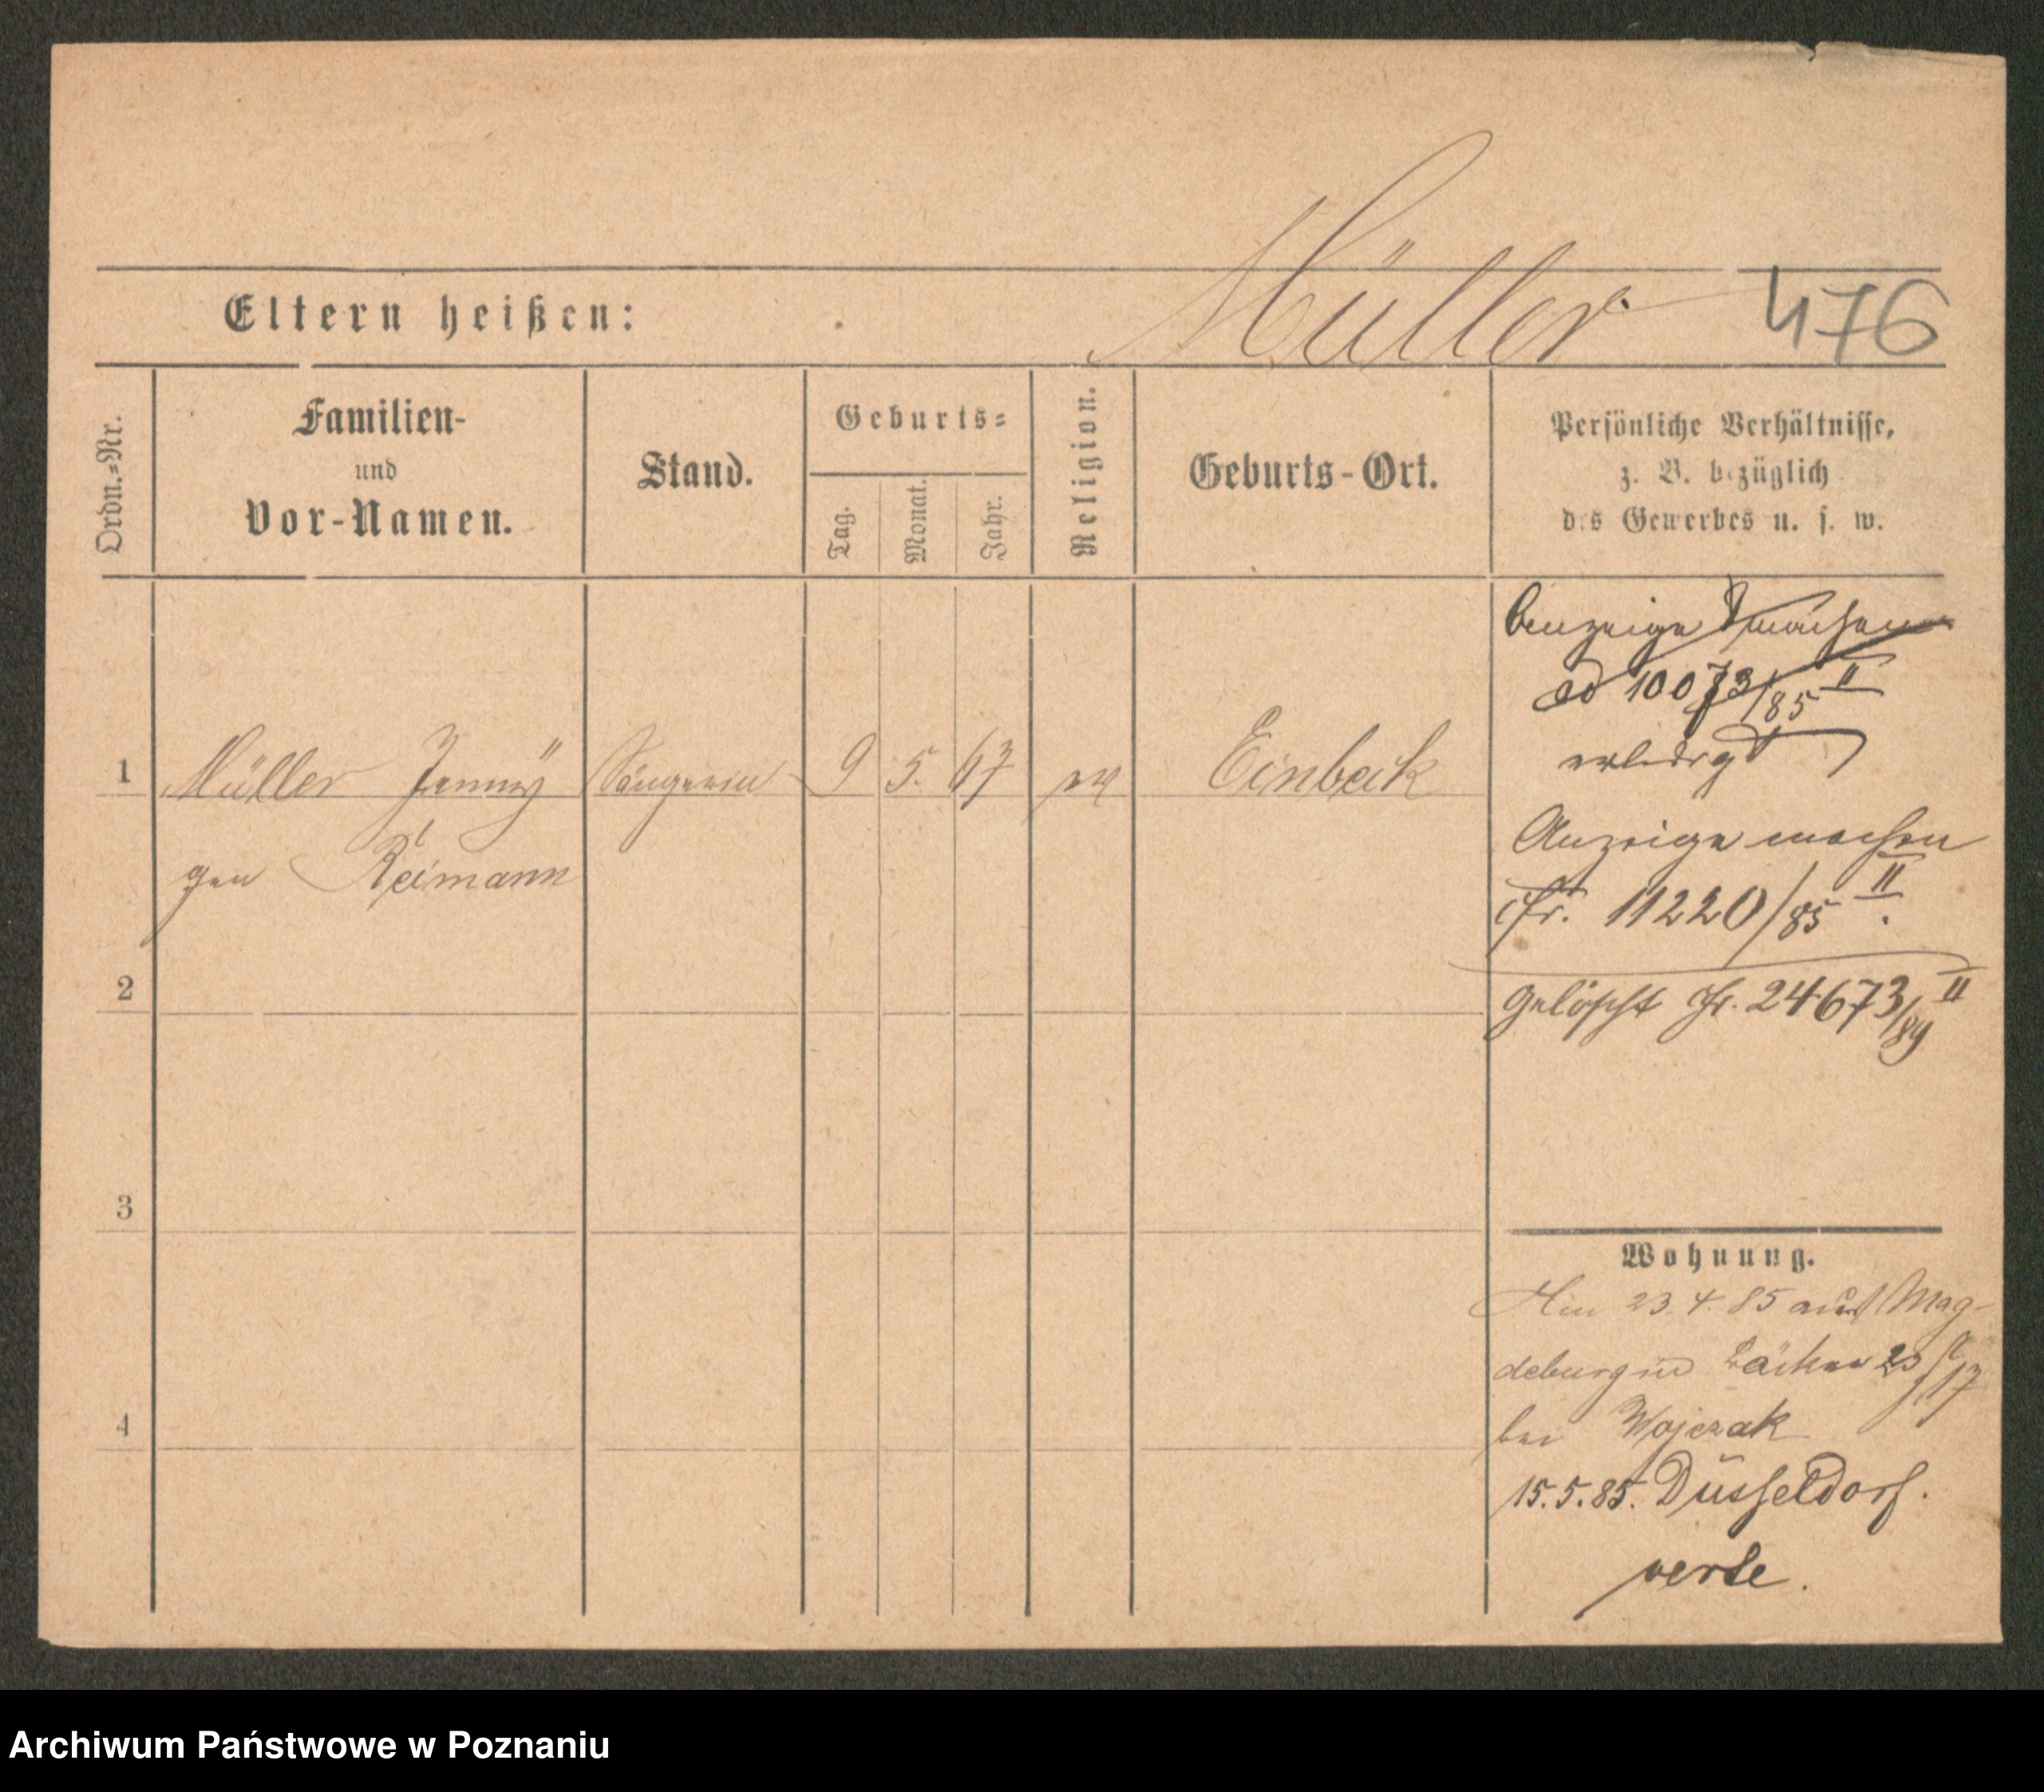 Müller 476
Eltern heißen:
Ordn.=Nr.
Familien-
und
Vor-Namen.
Stand.
Geburts=
Tag.
Monat.
Jahr.
Religion.
Geburts-Ort.
Persönliche Verhältnisse,
z. B. bezüglich
des Gewerbes u. s. w.
Anzeige machen
ad 10073/85 II
erledigt
1 Müller Jenny Sängerin 9 5. 67 ev Einbeck
gen Reimann
Anzeige machen
Jr. 11220/85 II.
2
gelöscht Jr. 24673/89 II
3
4
Wohnung.
23. 4. 85 aus Mag-
deburg in 23/17
bei Wojczak
15. 5. 85. Düsseldorf.
verte.
Archiwum Państwowe w Poznaniu